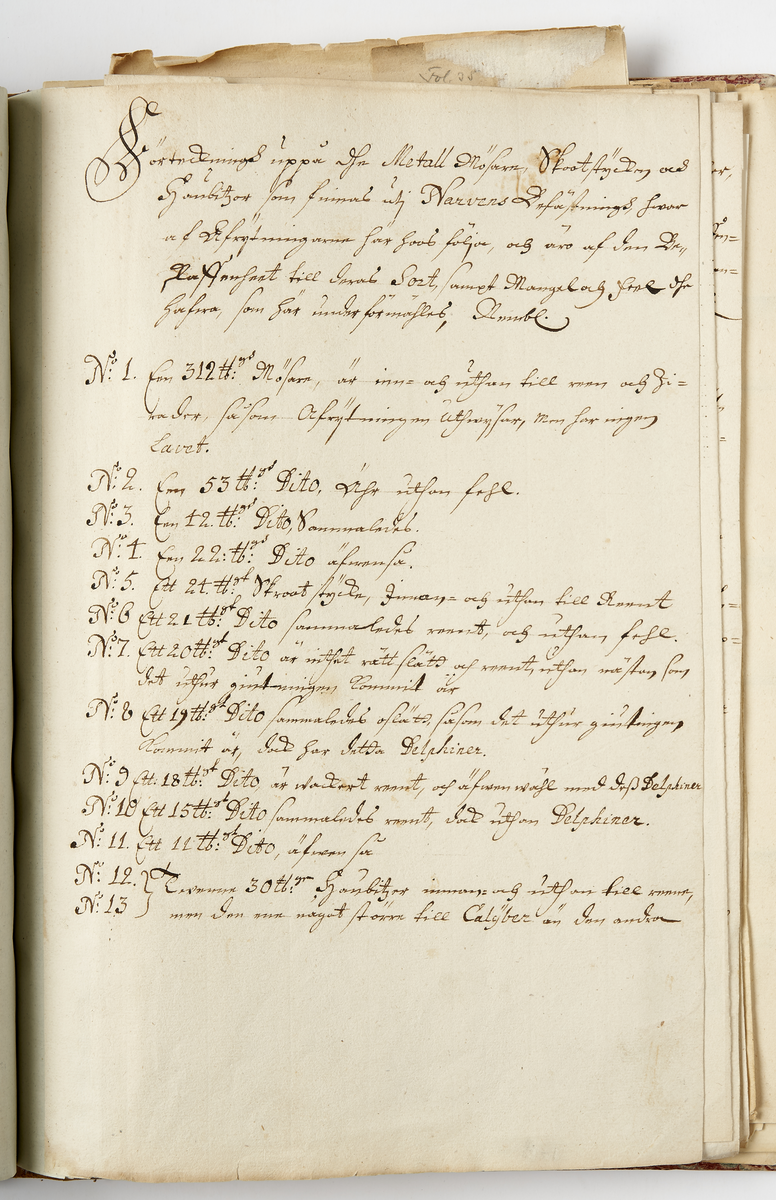 Fol. 35
Förteckningh uppå dhe Metall Mösare, Skootstÿcken och
Haubitzer som finnas utj Narvens Befästningh, hwar
af Afrijtningarne här hoos följa, och äro af den Be-
skaffenheet till deras Sort, sampt Mangel och feel dhe
hafwa, som här underförmähles, Nembl:
No: 1. Een 312 ℔:gs Mösare, är inn= och uthan till reen och Zi=
rader, såsom Afrijtningen uthwijsar, Men har ingen
Lavet.
No: 2. Een 53 ℔:gs Dito. Ähr uthan fehl.
No: 3. Een 42. ℔:gs Dito, Sammaledes.
No: 4. Een 22: ℔:gs Dito äfwenså.
No: 5. Ett 24. ℔:gt Skrootstÿcke, Innan= och uthan till Reent
No: 6 Ett 21 ℔:gt Dito sammaledes reent, och uthan fehl.
No: 7. Ett 20 ℔:gt Dito är inthet rätt slätt och reent, uthan nästan som
det uthur giutningen kommit är
No: 8 Ett 19 ℔:gt Dito sammaledes oslätt, såsom det uthur giutningen
kommit är, doch har detta Delphiner.
No: 9 Ett: 18 ℔:gt Dito, är wackert reent, och äfwen wähl med deß Delphiner
No: 10 Ett 15 ℔:gt Dito sammaledes reent, doch uthan Delphiner.
No: 11. Ett 11 ℔:gt Dito, äfwen så
No: 12. } Twenne 30 ℔:ger Haubitzer innan= och uthan till reene,
No: 13 men den ene något större till Calÿber än den andra